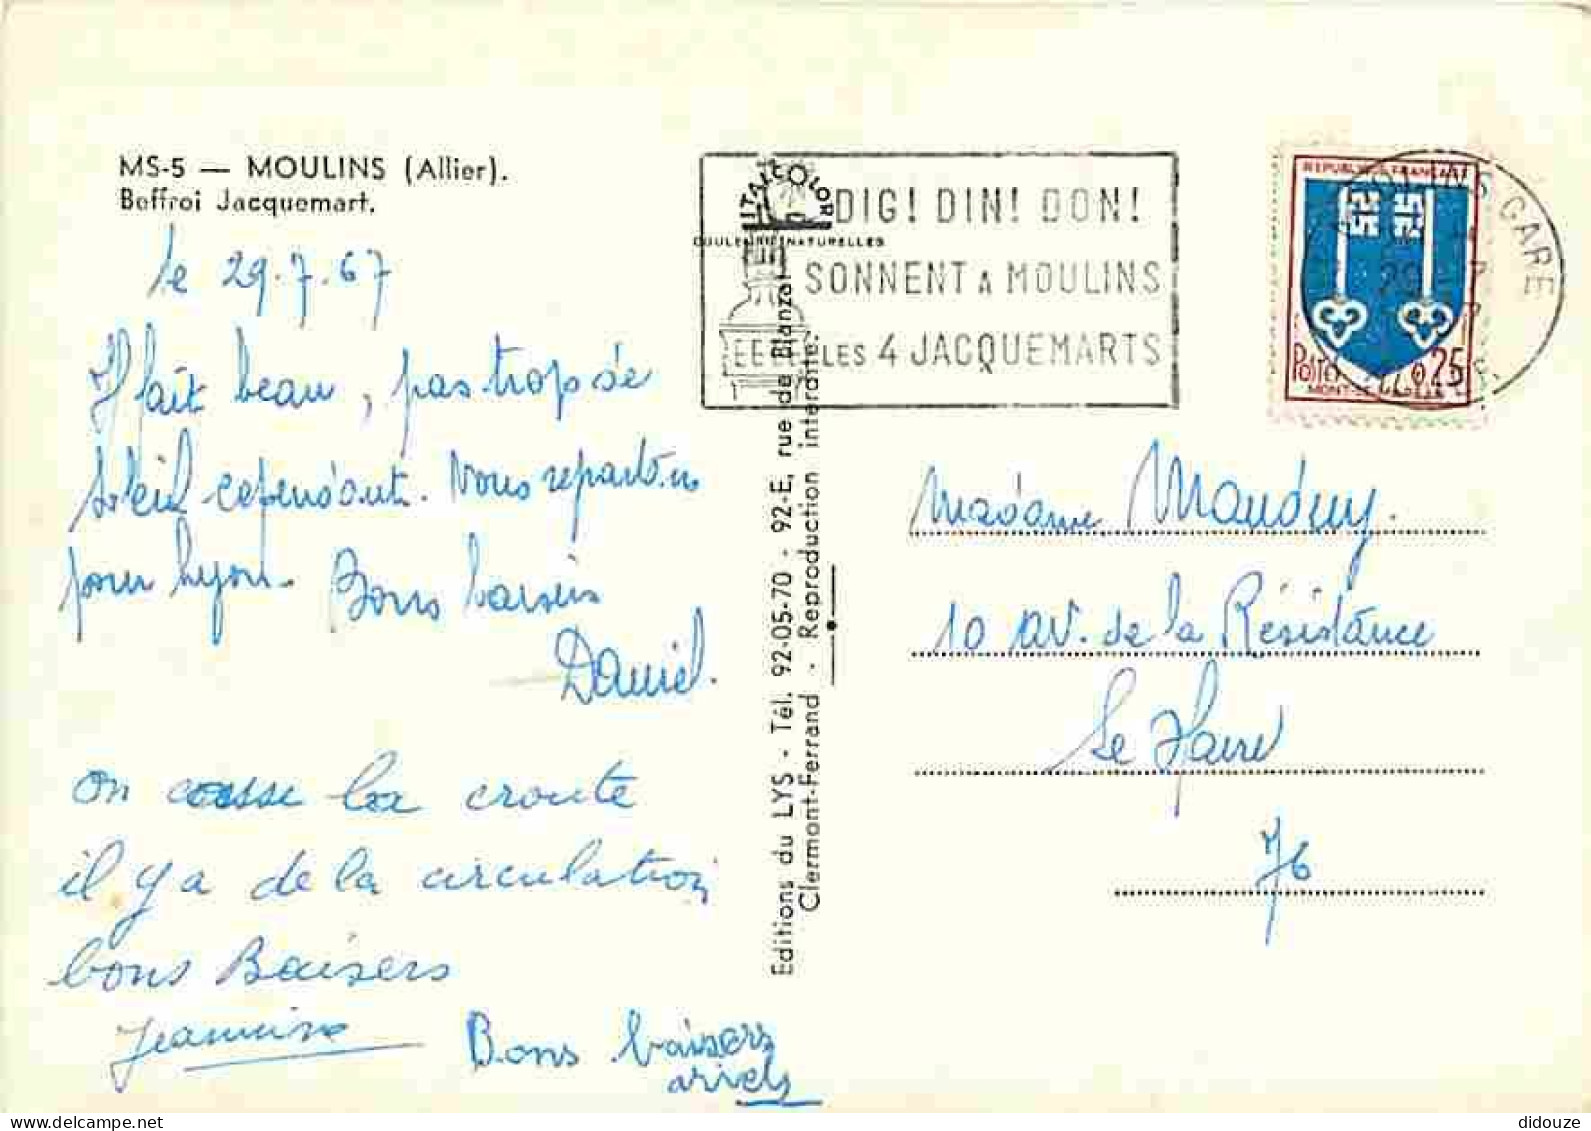 MS-5 — MOULINS (Allier).
Beffroi Jacquemart.
le 29.7.67
Il fait beau, pas trop de
soleil cependant. Nous repartons
pour Lyon. Bons baisers
Daniel.
on casse la croute
il y a de la circulation
bons Baisers
Jeannine
Bons baisers
Editions du LYS - Tél. 92-05-70 - 92-E, rue de Blanzat
Clermont-Ferrand - Reproduction interdite.
ITALCOLOR
COULEURS NATURELLES
DIG! DIN! DON!
SONNENT A MOULINS
LES 4 JACQUEMARTS
REPUBLIQUE FRANÇAISE
0,25
MOULINS GARE
29 - 7
Madame Mauduy.
10 av. de la Résistance
Le Havre
76
didouze